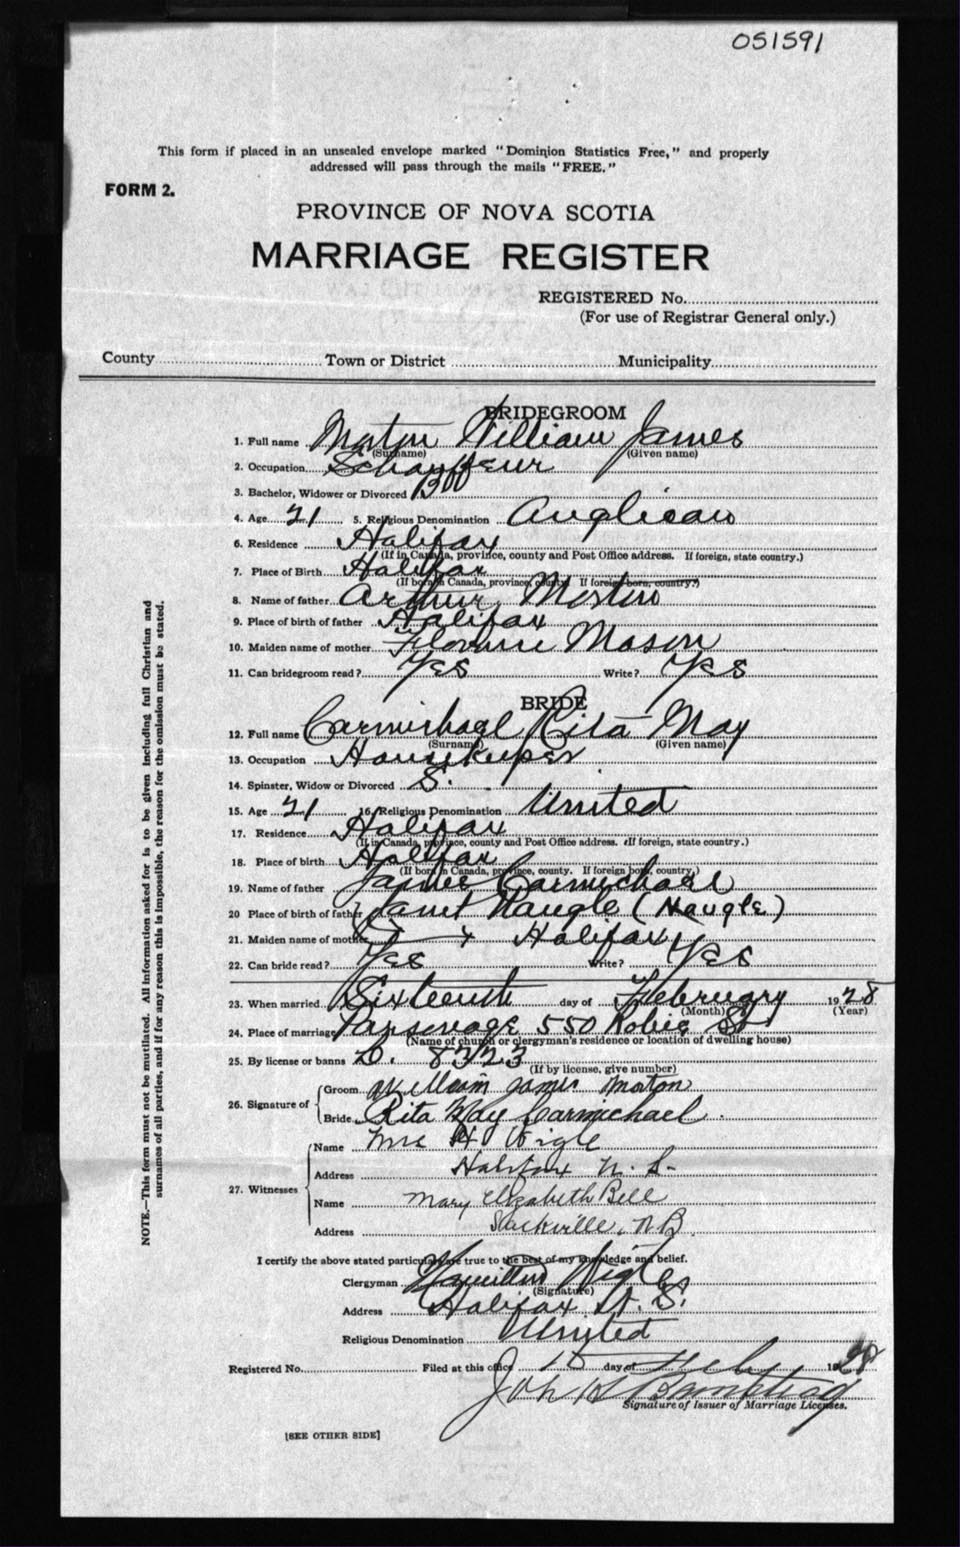 051591
This form if placed in an unsealed envelope marked "Dominion Statistics Free," and properly
addressed will pass through the mails "FREE."
FORM 2.
PROVINCE OF NOVA SCOTIA
MARRIAGE REGISTER
REGISTERED No.
(For use of Registrar General only.)
County Town or District Municipality
BRIDEGROOM
1. Full name Morton William James
(Surname) (Given name)
2. Occupation Schauffeur
3. Bachelor, Widower or Divorced B
4. Age 21 5. Religious Denomination Anglican
6. Residence Halifax
(If in Canada, province, county and Post Office address. If foreign, state country.)
7. Place of Birth Halifax
(If born in Canada, province, county. If foreign born, country.)
8. Name of father Arthur Morton
9. Place of birth of father Halifax
10. Maiden name of mother Florence Mason
11. Can bridegroom read? Yes Write? Yes
BRIDE
12. Full name Carmichael Rita May
(Surname) (Given name)
13. Occupation Housekeeper
14. Spinster, Widow or Divorced S.
15. Age 21 16. Religious Denomination United
17. Residence Halifax
(If in Canada, province, county and Post Office address. If foreign, state country.)
18. Place of birth Halifax
(If born in Canada, province, county. If foreign born, country.)
19. Name of father James Carmichael
20 Place of birth of father Janet Naugle (Naugle)
21. Maiden name of mother Halifax
22. Can bride read? Yes Write? Yes
23. When married Sixteenth day of February 1928
(Month) (Year)
24. Place of marriage Parsonage 550 Robie St
(Name of church or clergyman's residence or location of dwelling house)
25. By license or banns L. 8323
(If by license, give number)
26. Signature of Groom William James Morton
Bride Rita May Carmichael
27. Witnesses
Name Mrs H Wigle
Address Halifax N. S.
Name Mary Elizabeth Bell
Address Sackville, N B
I certify the above stated particulars are true to the best of my knowledge and belief.
Clergyman Hamilton Wigle
(Signature)
Address Halifax N. S.
Religious Denomination United
Registered No. Filed at this office day of Feb 1928
Signature of Issuer of Marriage Licenses.
[SEE OTHER SIDE]
NOTE.—This form must not be mutilated. All information asked for is to be given including full Christian and
surnames of all parties, and if for any reason this is impossible, the reason for the omission must be stated.